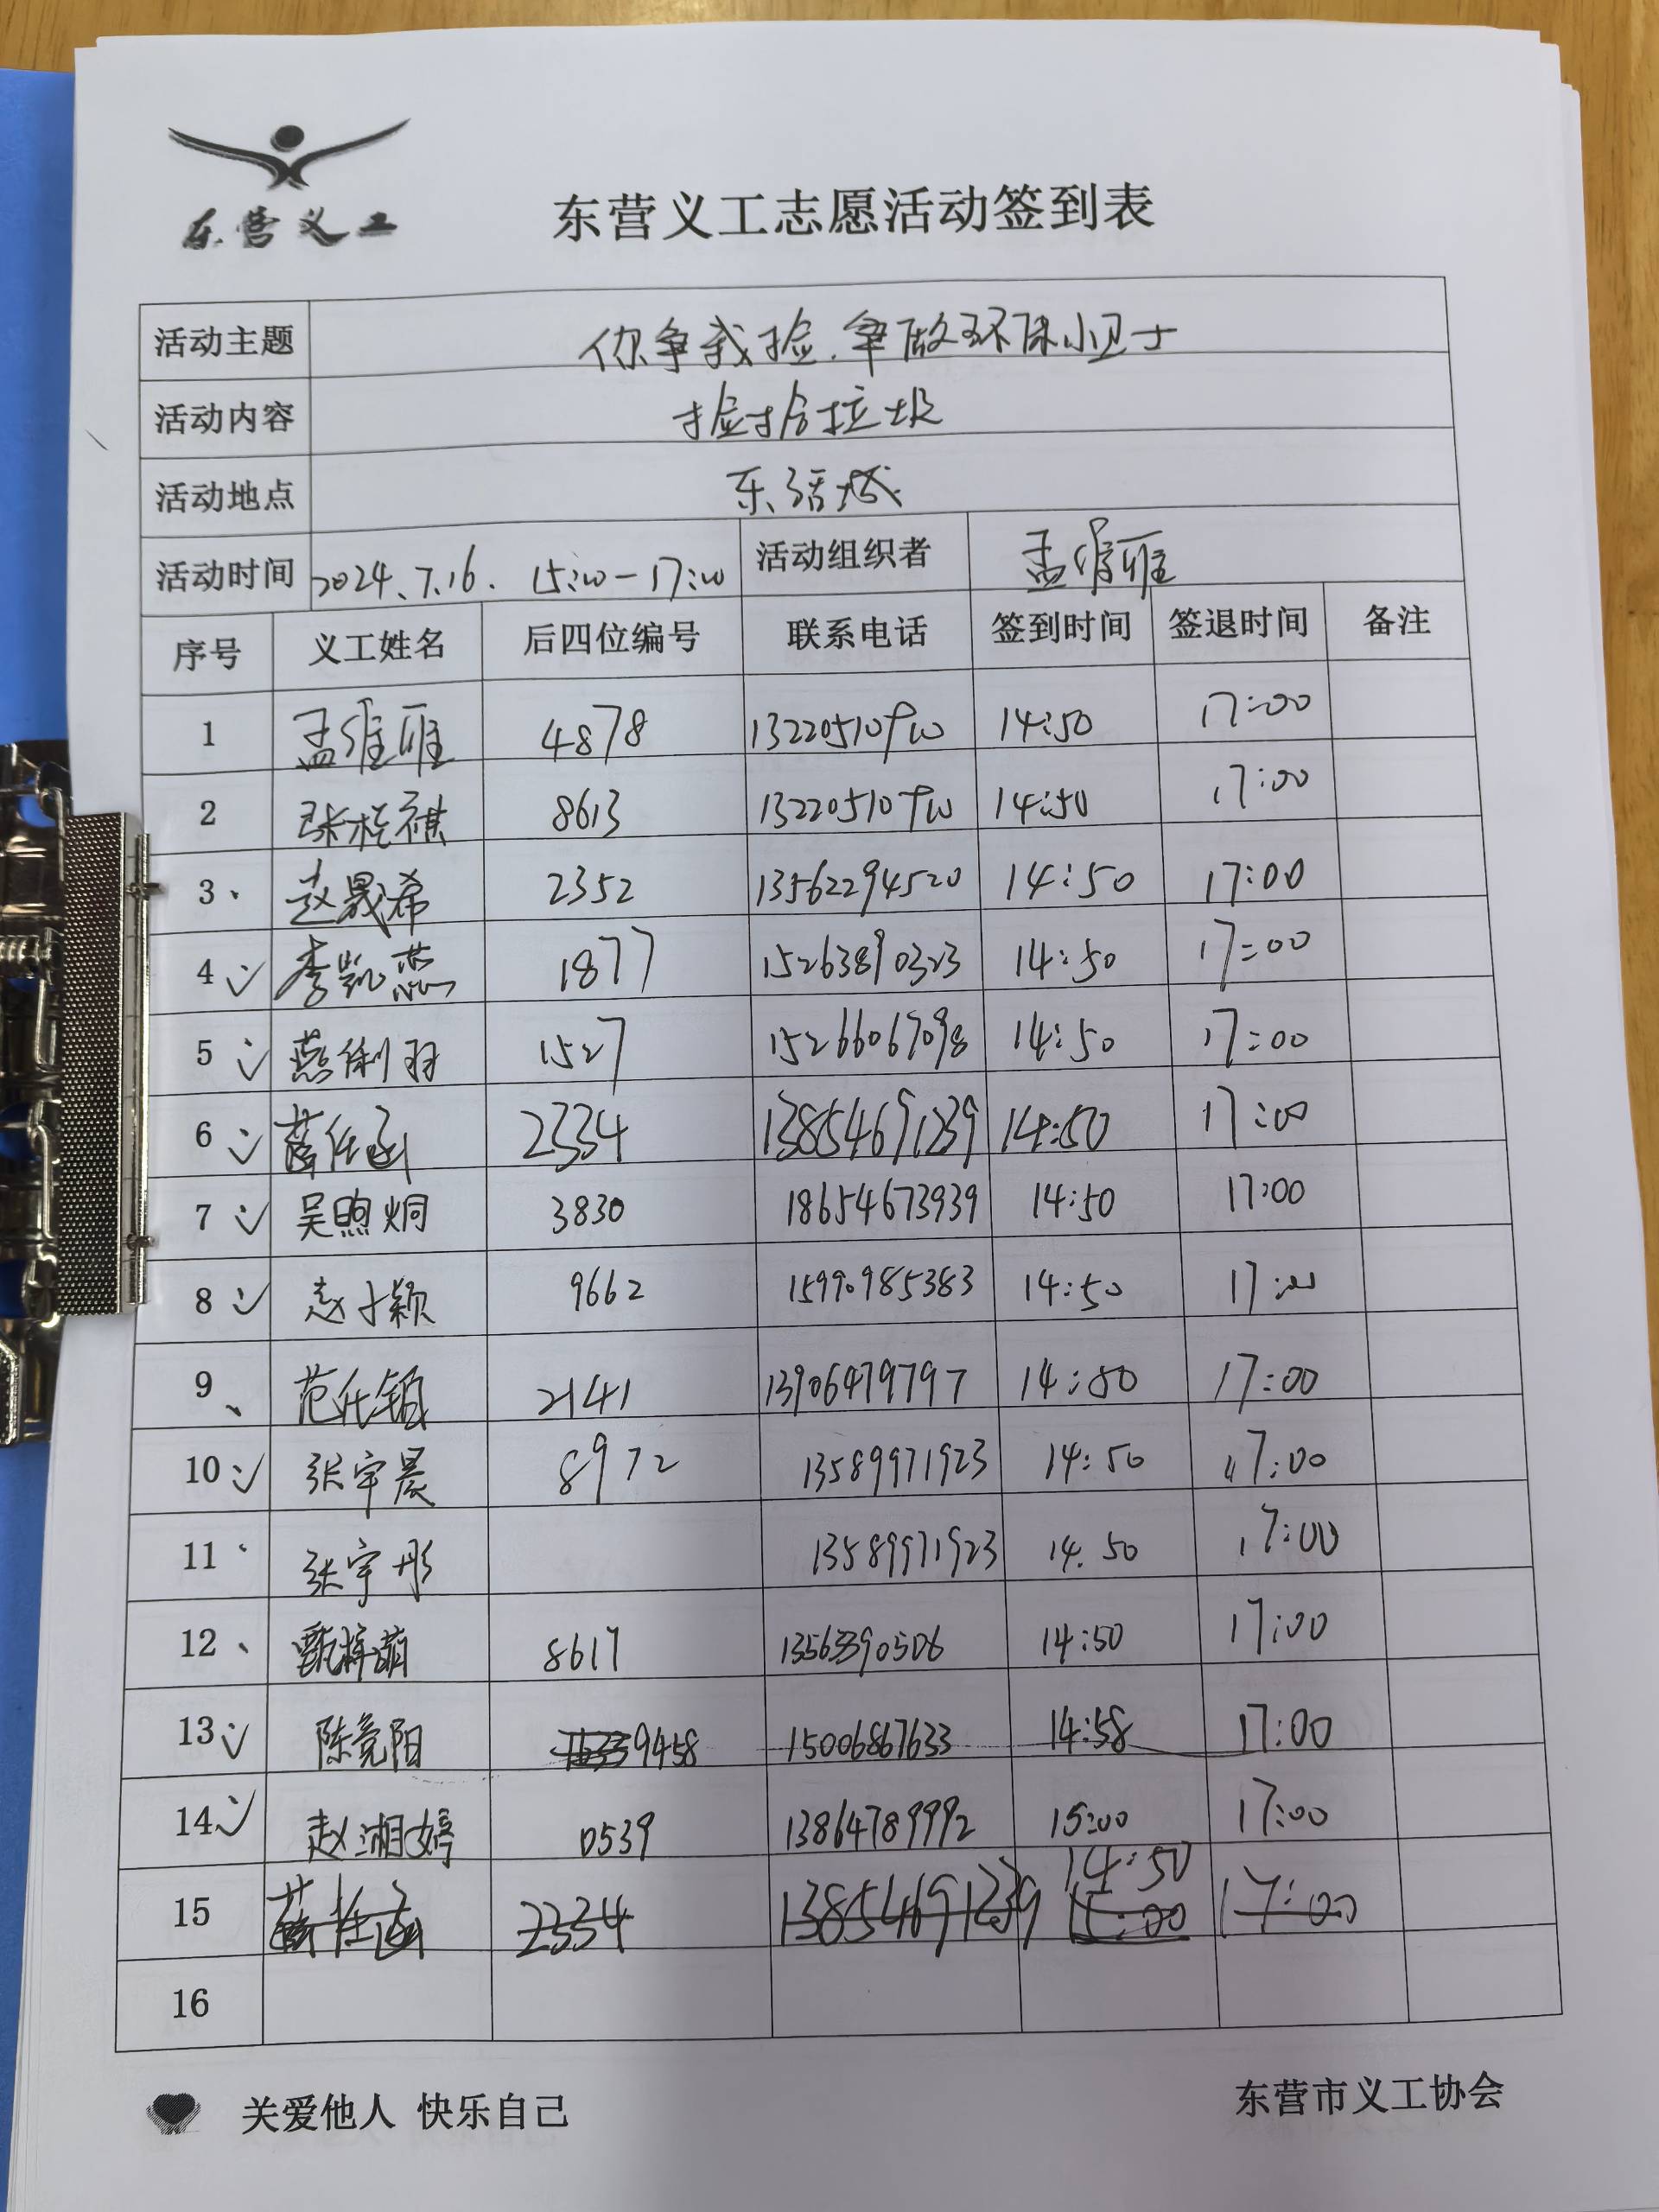 东营义工
东营义工志愿活动签到表
活动主题 你争我捡.争做环保小卫士
活动内容 捡拾垃圾
活动地点 东活城
活动时间 2024.7.16. 15:00-17:00 活动组织者 孟维雅
序号 义工姓名 后四位编号 联系电话 签到时间 签退时间 备注
1 孟维雅 4878 14:50 17:00
2 8613 14:50 17:00
3 赵晟希 2352 13562294520 14:50 17:00
4 李凯蕊 1877 15263890323 14:50 17:00
5 燕俐羽 1527 15266067098 14:50 17:00
6 薛任函 2334 13854691239 14:50 17:00
7 吴煦炯 3830 18654673939 14:50 17:00
8 赵才颖 9662 15990985383 14:50 17:00
9 2141 13906479797 14:50 17:00
10 张宇晨 8972 13589971923 14:50 17:00
11 张宇彤 13589971923 14.50 17:00
12 8617 13563390506 14:50 17:00
13 陈竞阳 9458 15006867633 14:58 17:00
14 赵湘婷 0539 13864789992 15:00 17:00
15 薛任函 2334 13854691239 14:50 15:00 17:00
16
关爱他人 快乐自己
东营市义工协会